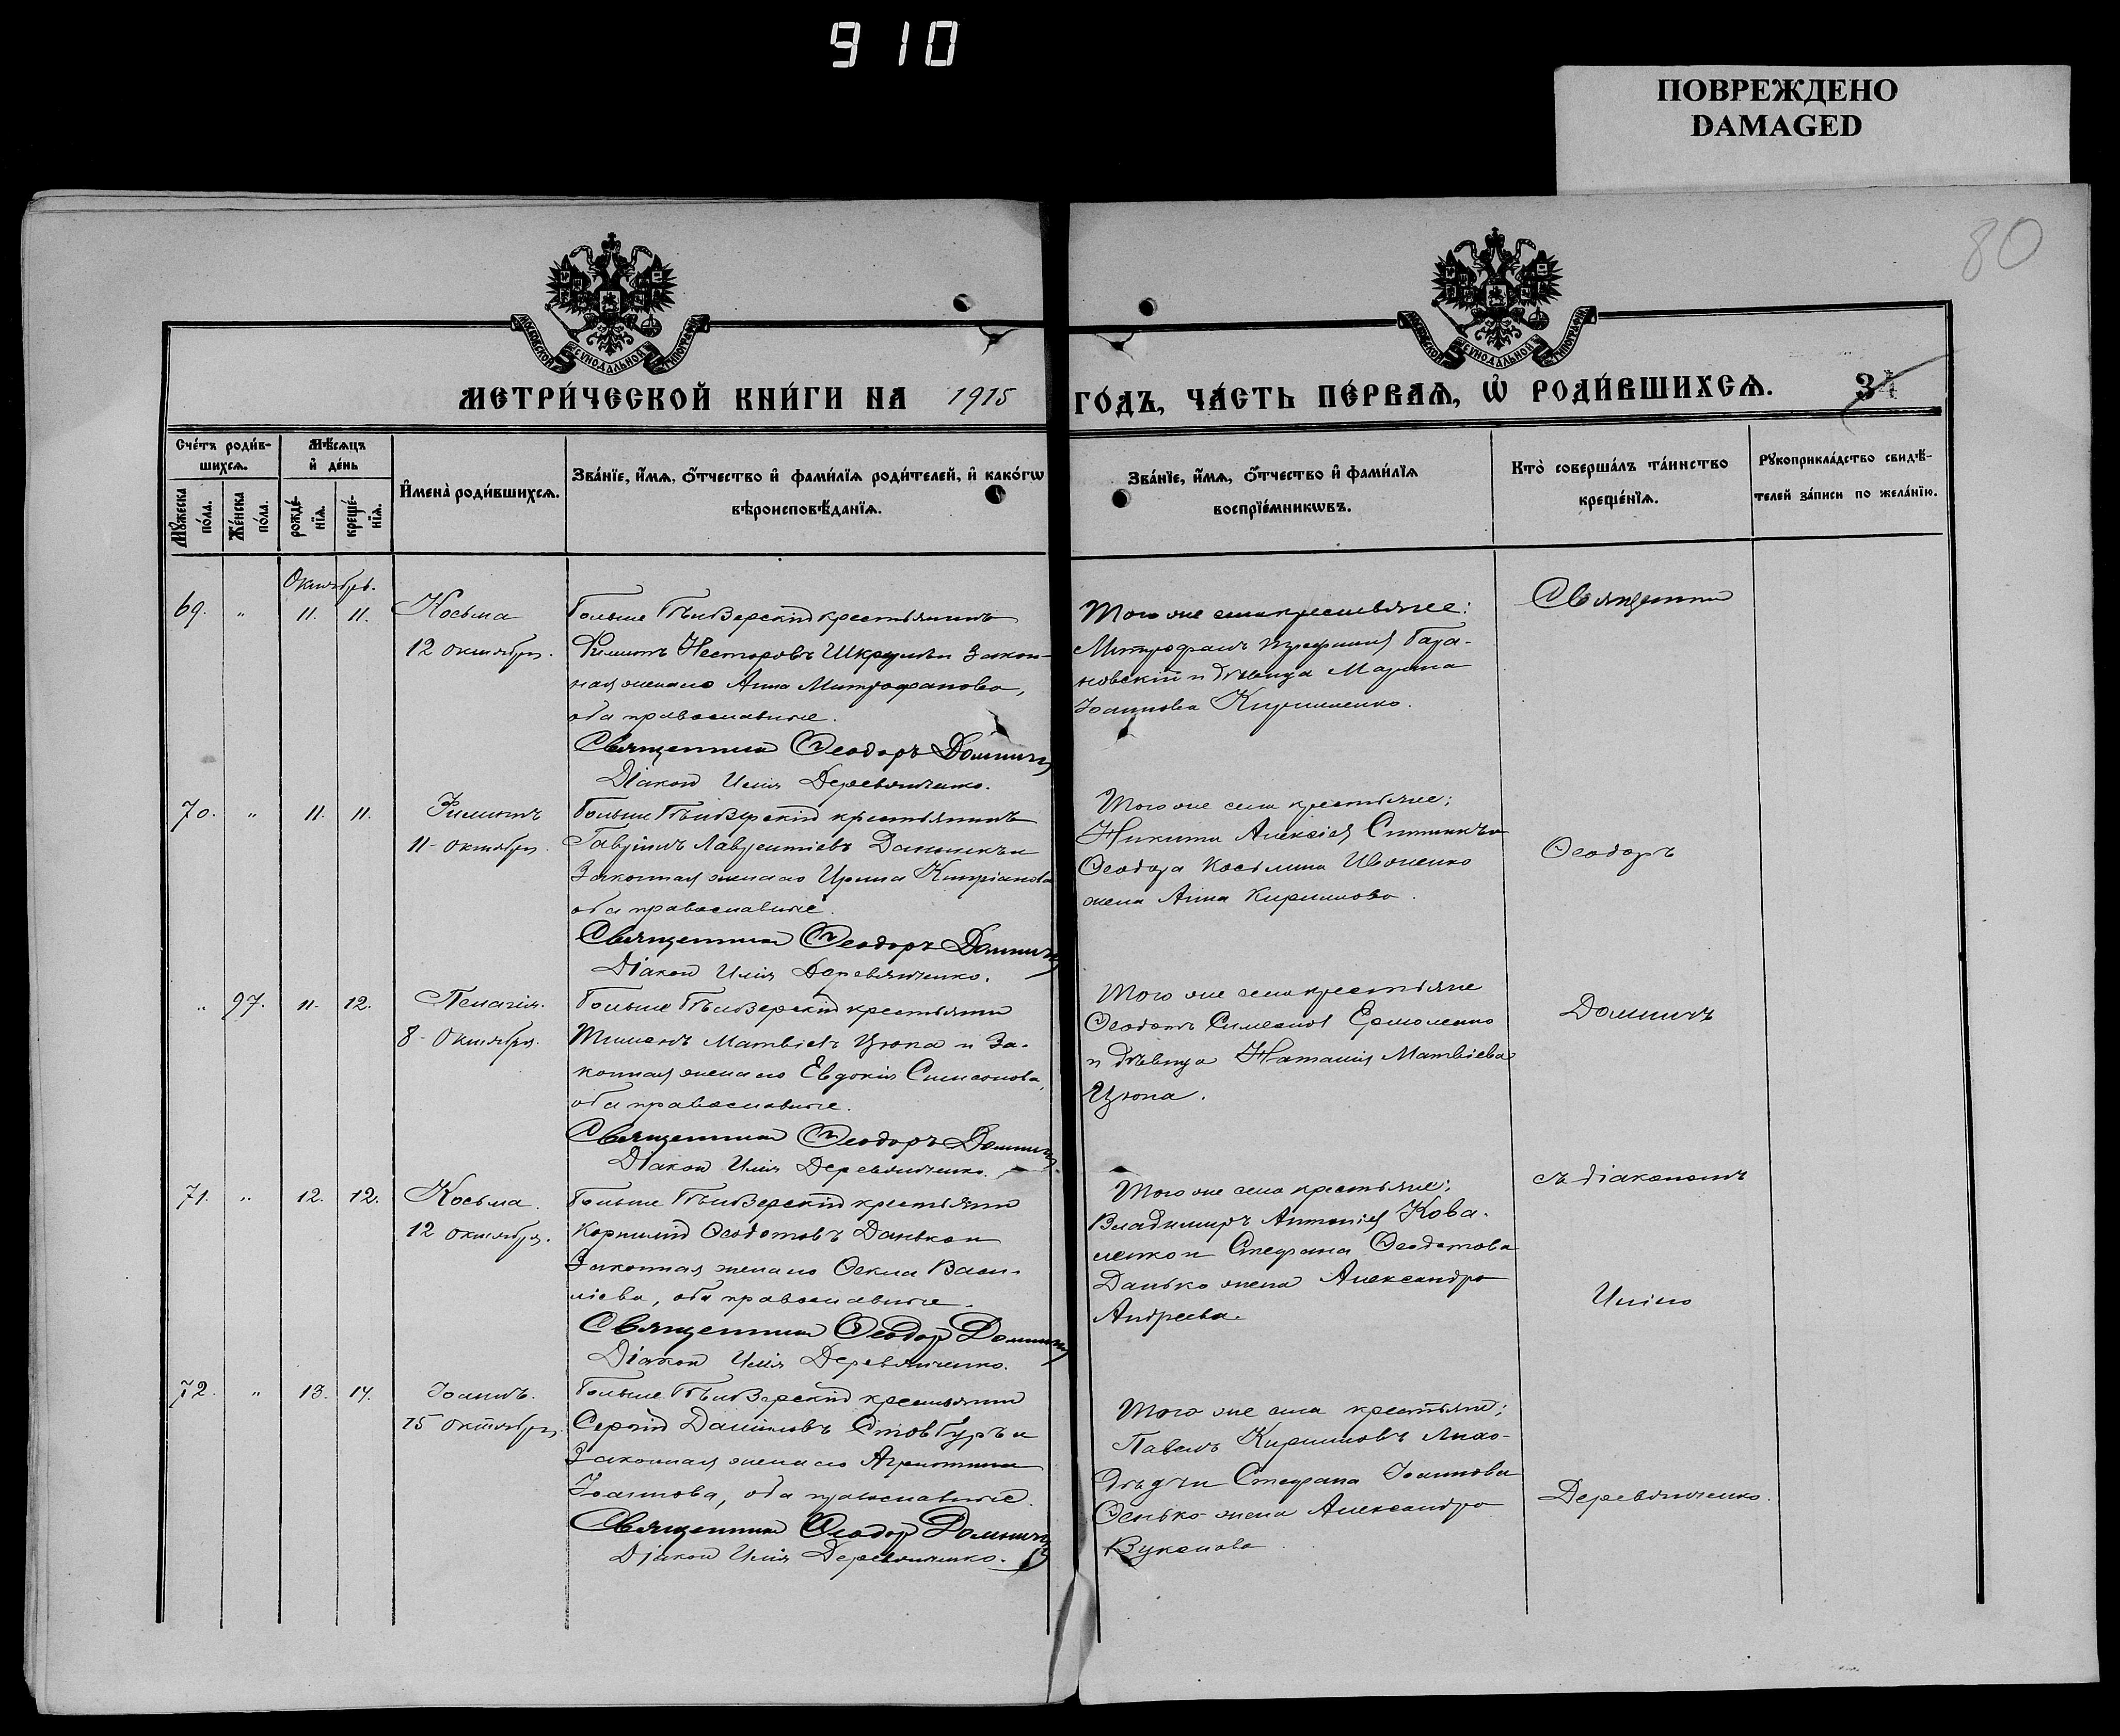 910
ПОВРЕЖДЕНО
DAMAGED
80
МОСКОВСКОЙ СѴНОДАЛЬНОЙ ТИПОГРАФІИ
МОСКОВСКОЙ СѴНОДАЛЬНОЙ ТИПОГРАФІИ
МЕТРИ́ЧЕСКОЙ КНИ́ГИ НА 1915 ГО́ДЪ, ЧА́СТЬ ПЕ́РВАѦ, Ѡ РОДИ́ВШИХСѦ. 34
Сче́тъ роди́в-
шихсѧ.
Мѣ́сѧцъ
и҆ де́нь
Мꙋ́жеска по́ла.
Же́нска по́ла.
рожде́-
нїѧ.
креще́-
нїѧ.
И҆мена̀ роди́вшихсѧ.
Зва́нїе, и҆́мѧ, ѻ҆́тчество и҆ фами́лїѧ роди́телей, и҆ како́гѡ
вѣроисповѣ́данїѧ.
Зва́нїе, и҆́мѧ, ѻ҆́тчество и҆ фами́лїѧ
воспрїе́мникѡвъ.
Кто̀ соверша́лъ та́инство
креще́нїѧ.
Рꙋкоприкла́дство свидѣ́-
телей за́писи по жела́нїю.
Октябрь.
69. " 11. 11. Косьма
12 октября.
крестьянинъ
Несторовъ закон-
ная жена его Анна Митрофанова,
оба православные.
Священникъ Ѳеодоръ Домничъ
Діаконъ Илія Деревянченко.
Того же села крестьяне:
Митрофанъ
и дѣвица Марина
Іоаннова Кириленко.
Священникъ
70. " 11. 11. Филиппъ
11 октября.
крестьянинъ
Гавріилъ Лаврентіевъ и
законная жена его Ирина Кипріанова
оба православные.
Священникъ Ѳеодоръ Домничъ
Діаконъ Илія Деревянченко.
Того же села крестьяне:
Никита Алексіев и
Ѳеодора Косьмина Ивженко
жена Анна Кириллова.
Ѳеодоръ
" 97. 11. 12. Пелагія.
8 Октября.
крестьянин
Тимоѳей Матвіевъ Цюпа и за-
конная жена его Евдокія Симеонова,
оба православные.
Священникъ Ѳеодоръ Домничъ
Діаконъ Илія Деревянченко.
Того же села крестьяне
Ѳеодотъ Симеонов Ермоленко
и дѣвица Наталія Матвіева
Цюпа.
Домничъ
71. " 12. 12. Косьма.
12 октября.
крестьянин
Корнилій Ѳеодотовъ Данько и
законная жена его Ѳекла Васи-
ліева, оба православные.
Священникъ Ѳеодор Домничъ
Діаконъ Илія Деревянченко.
Того же села крестьяне:
Владимиръ Антоніев Кова-
ленко и Стефана Ѳеодотова
Данько жена Александра
Андреева.
съ діакономъ
Иліею
72. " 13. 14. Іоаннъ.
15 октября.
крестьянин
Сергій Даніиловъ Стовбуръ и
законная жена его Агриппина
Іоаннова, оба православные.
Священникъ Ѳеодор Домничъ
Діаконъ Илія Деревянченко.
Того же села крестьяне;
Павелъ Кирилловъ Лихо-
дѣд и Стефана Іоаннова
жена Александра
Деревянченко.